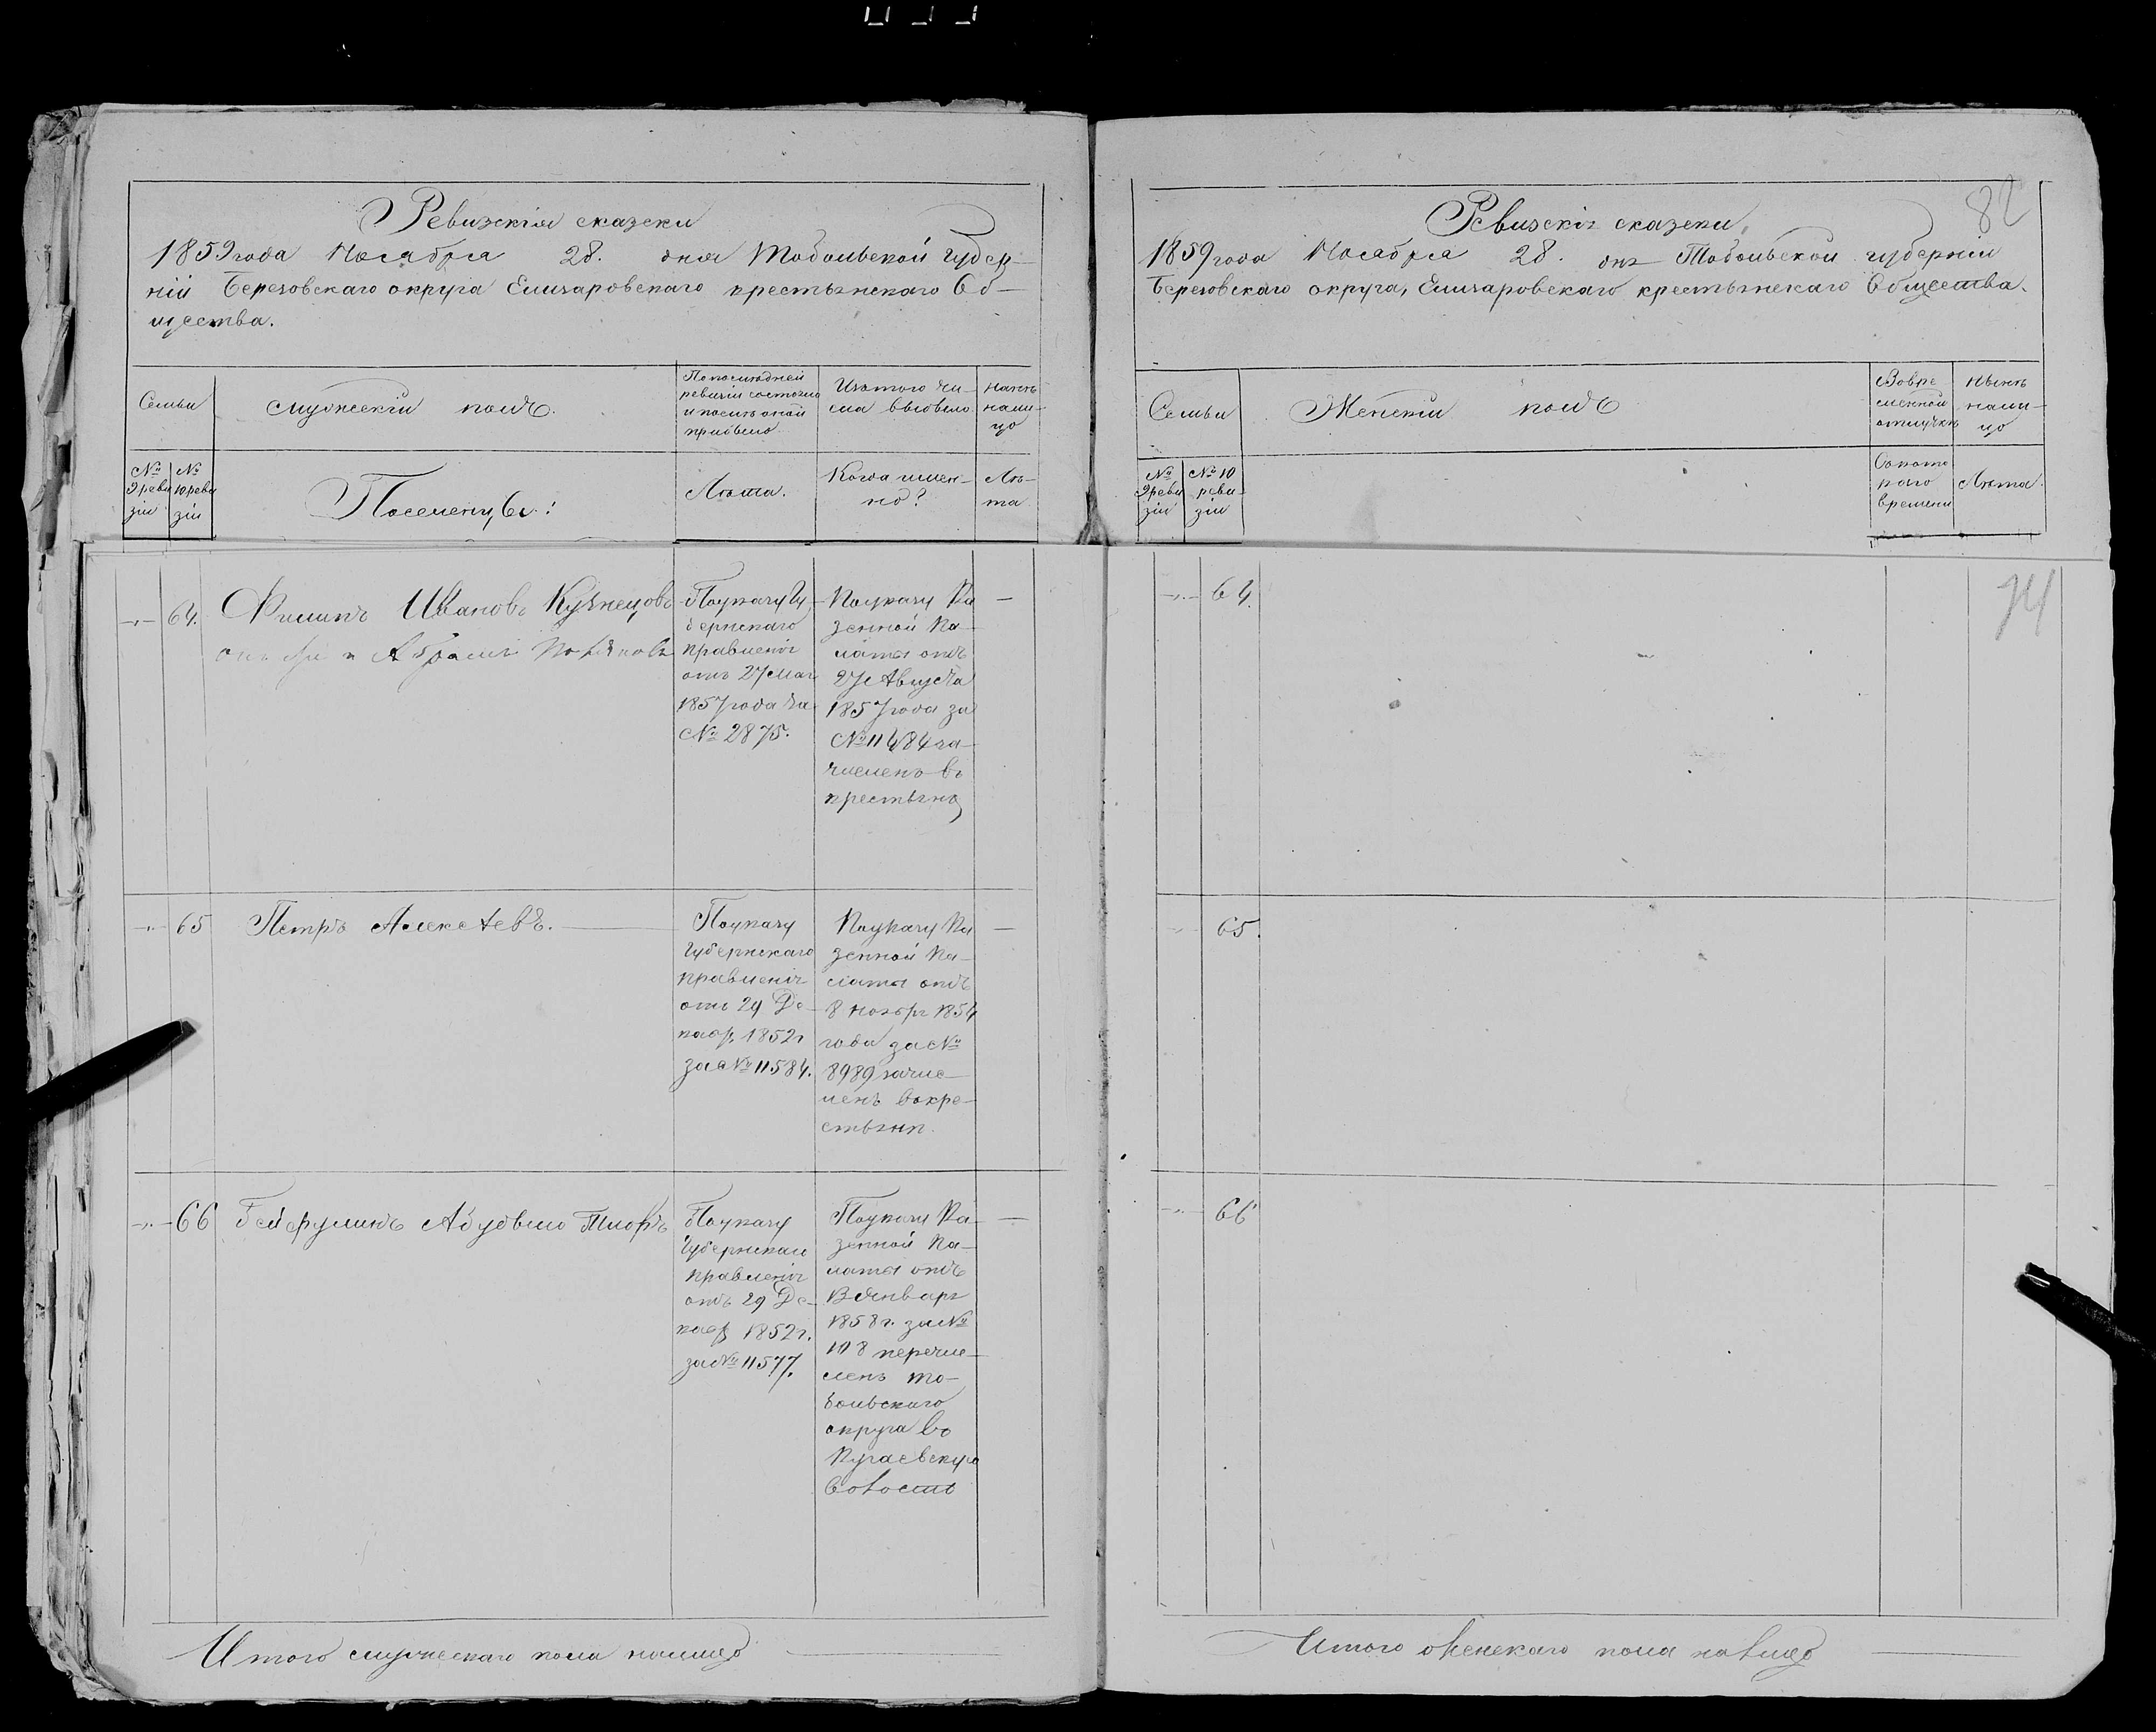 Ревизскія сказски
1859 года Ноября 28. дня Тобольской губер-
ніи Березовскаго округа Елизаровскаго крестьянскаго Об-
щества.
Семьи
мужескій полъ.
По последней
ревизіи состояло
и после оной
прибыло
Изтого чи-
сла выбыло
нынѣ
нали-
цо
№
9 реви
зіи
№
10 реви
зіи
Поселенцы:
Лѣта.
Когда имен-
но?
Лѣ-
та
64.
Филипъ Ивановъ Кузнецовъ
онъ же и Абрамъ
Поуказу Гу
бернскаго
правленія
отъ 27 мая
1857 года за
№ 2875.
Поуказу Ка
зенной Па-
латы отъ
27 Августа
1857 года за
№ 11484 за-
численъ въ
крестьяне
—
65
Петръ Алексѣевъ.
Поуказу
Губернскаго
правленія
отъ 29 Де-
кабр. 1852 г
за № 11584.
Поуказу Ка
зенной Па-
латы отъ
8 ноября 1854
года за №
8989 зачис-
ленъ вокре-
стьяне.
—
66
Бейфулинъ Абудвило
Поуказу
Губернскаго
правленія
отъ 29 Де-
кабр 1852 г.
за № 11577.
Поуказу Ка-
зенной Па-
латы отъ
13 Января
1858 г. за №
118 перечис-
ленъ То-
больскаго
округа во
Кугаевскую
волость
—
Итого мужескаго пола налицо
82
Ревизскія сказски
1859 года Ноября 28. дня Тобольской губерніи
Березовскаго округа, Елизаровскаго крестьянскаго Общества.
Семьи
Женскій полъ
Вовре
менной
отлучкѣ
нынѣ
нали-
цо
№
9 реви
зіи
№ 10
реви-
зіи
Сокото
раго
времени
Лѣта.
64.
74
65.
66
Итого женскаго пола налицо